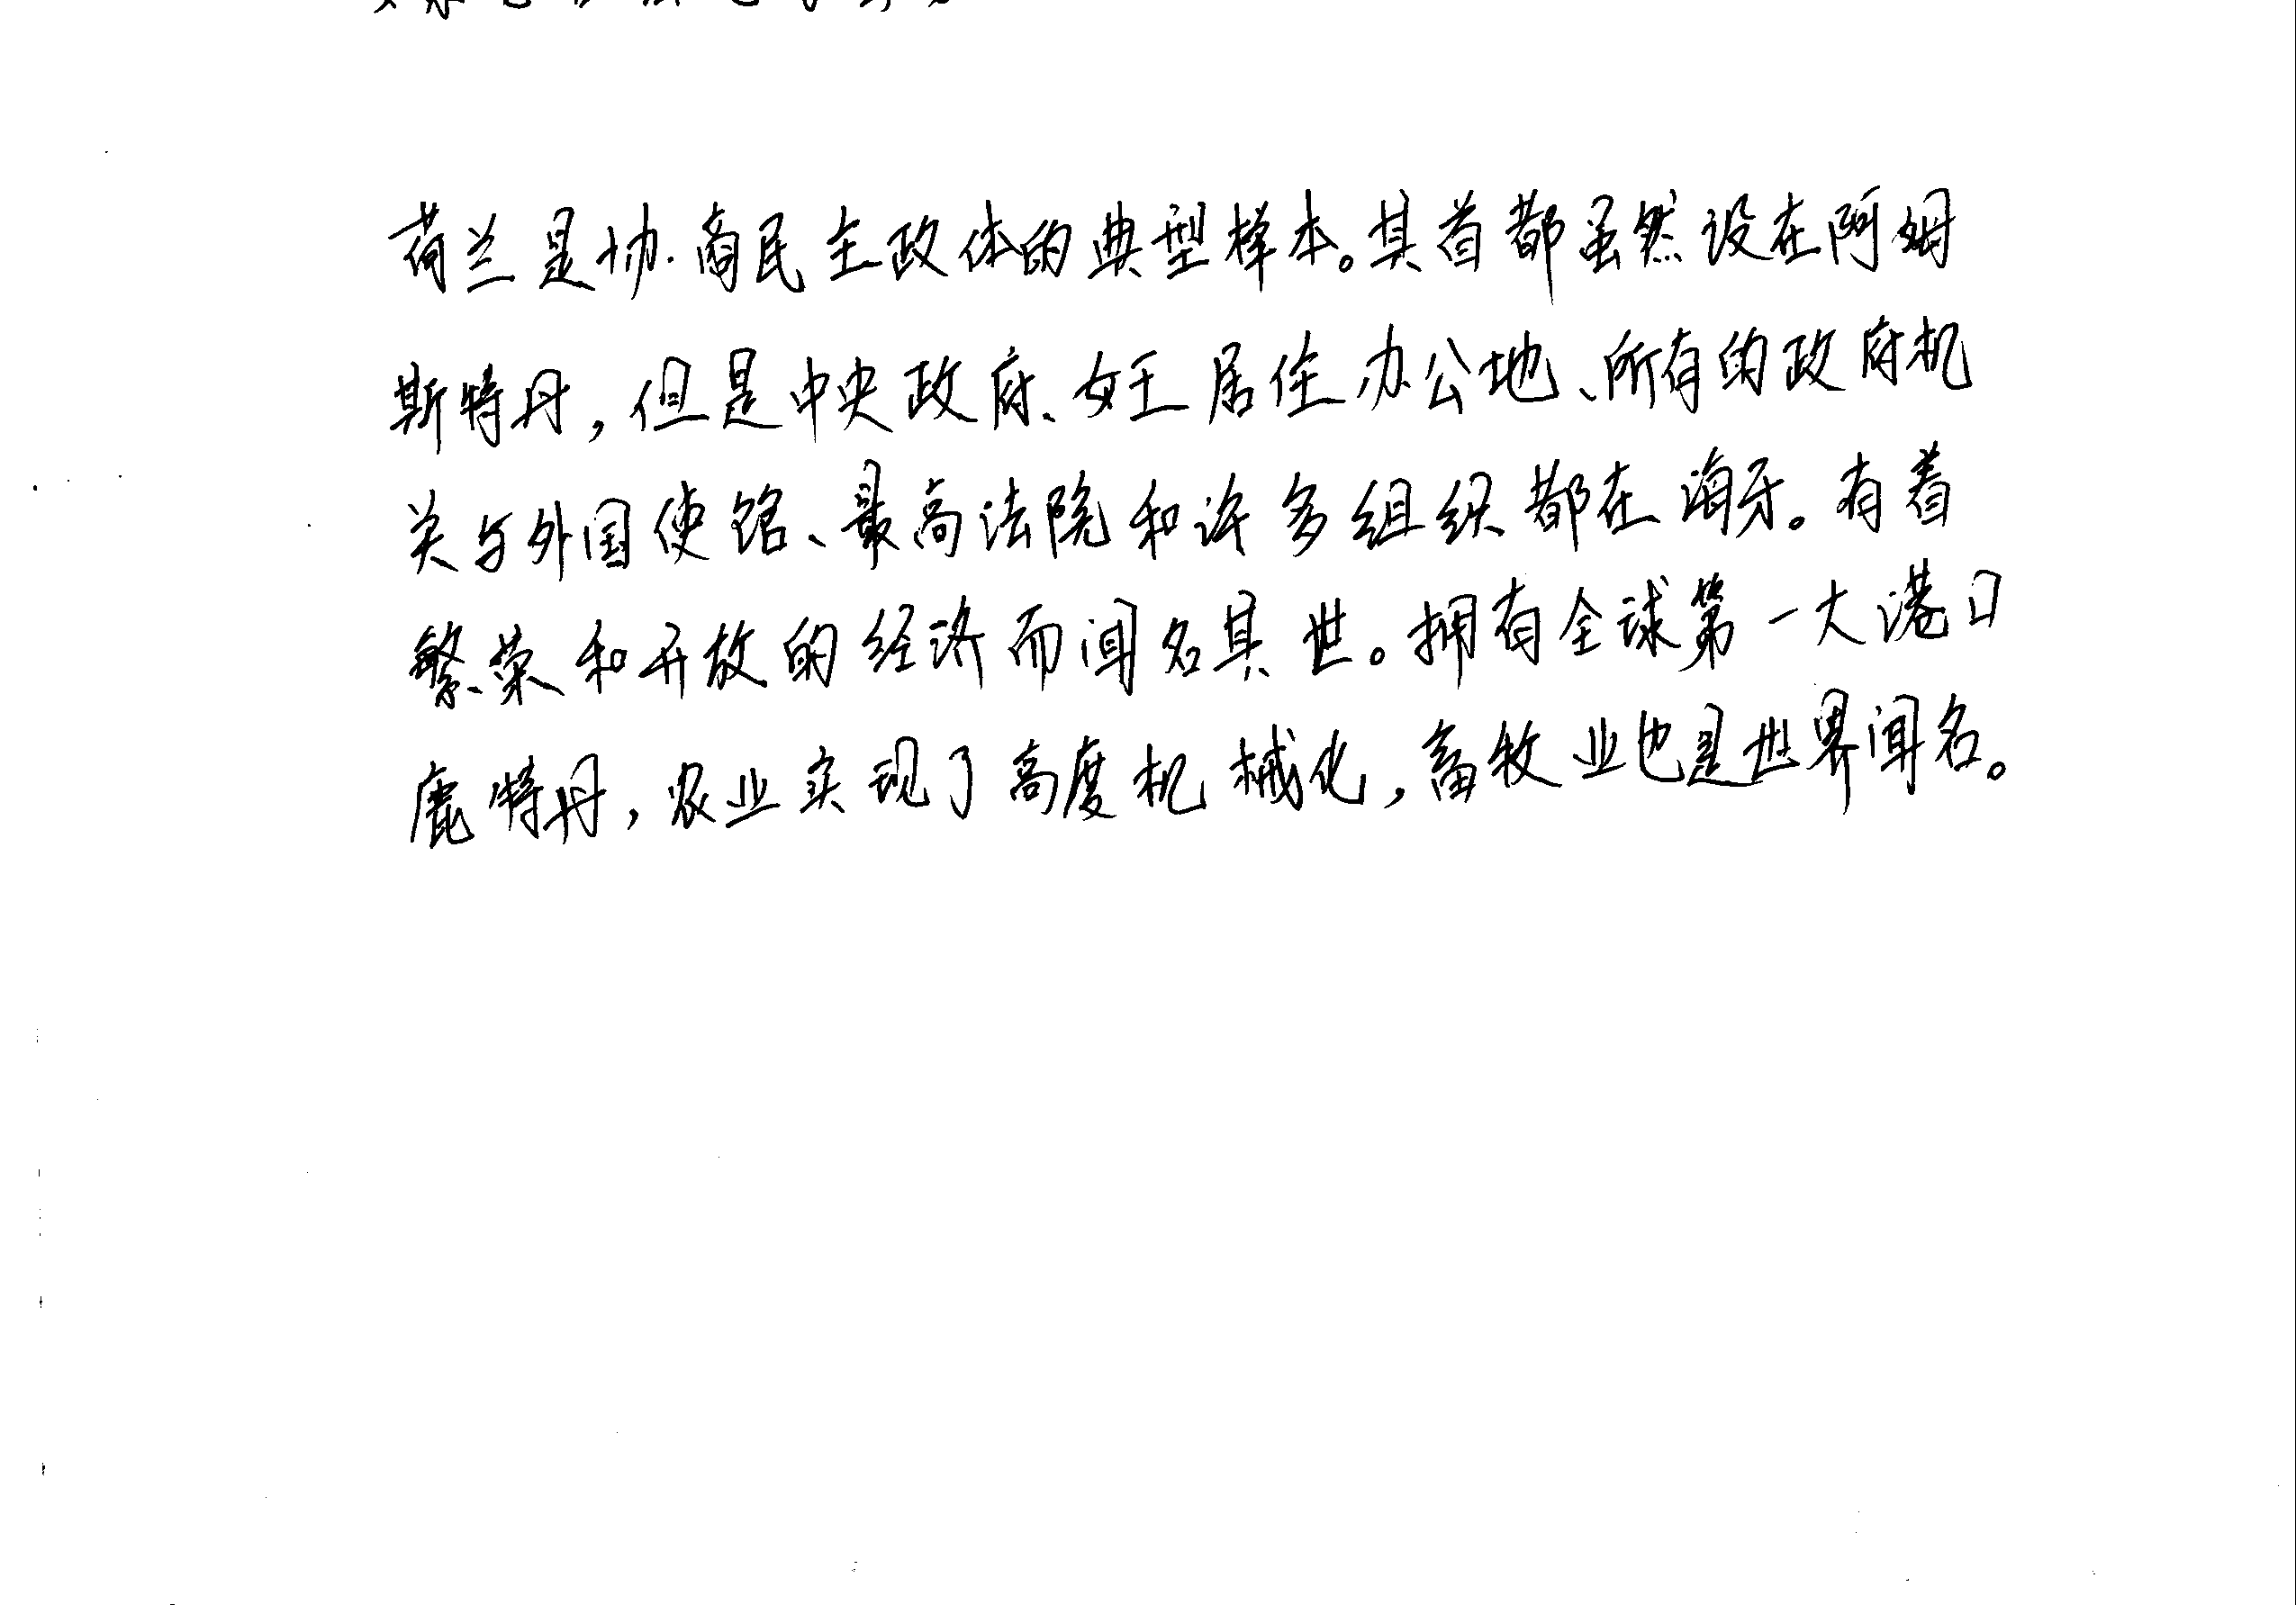 荷兰是协商民主政体的典型样本。其首都虽然设在阿姆
斯特丹，但是中央政府、女王居住办公地、所有的政府机
关与外国使馆、最高法院和许多组织都在海牙。有着
繁荣和开放的经济而闻名其世。拥有全球第一大港口
鹿特丹，农业实现了高度机械化，畜牧业也是世界闻名。